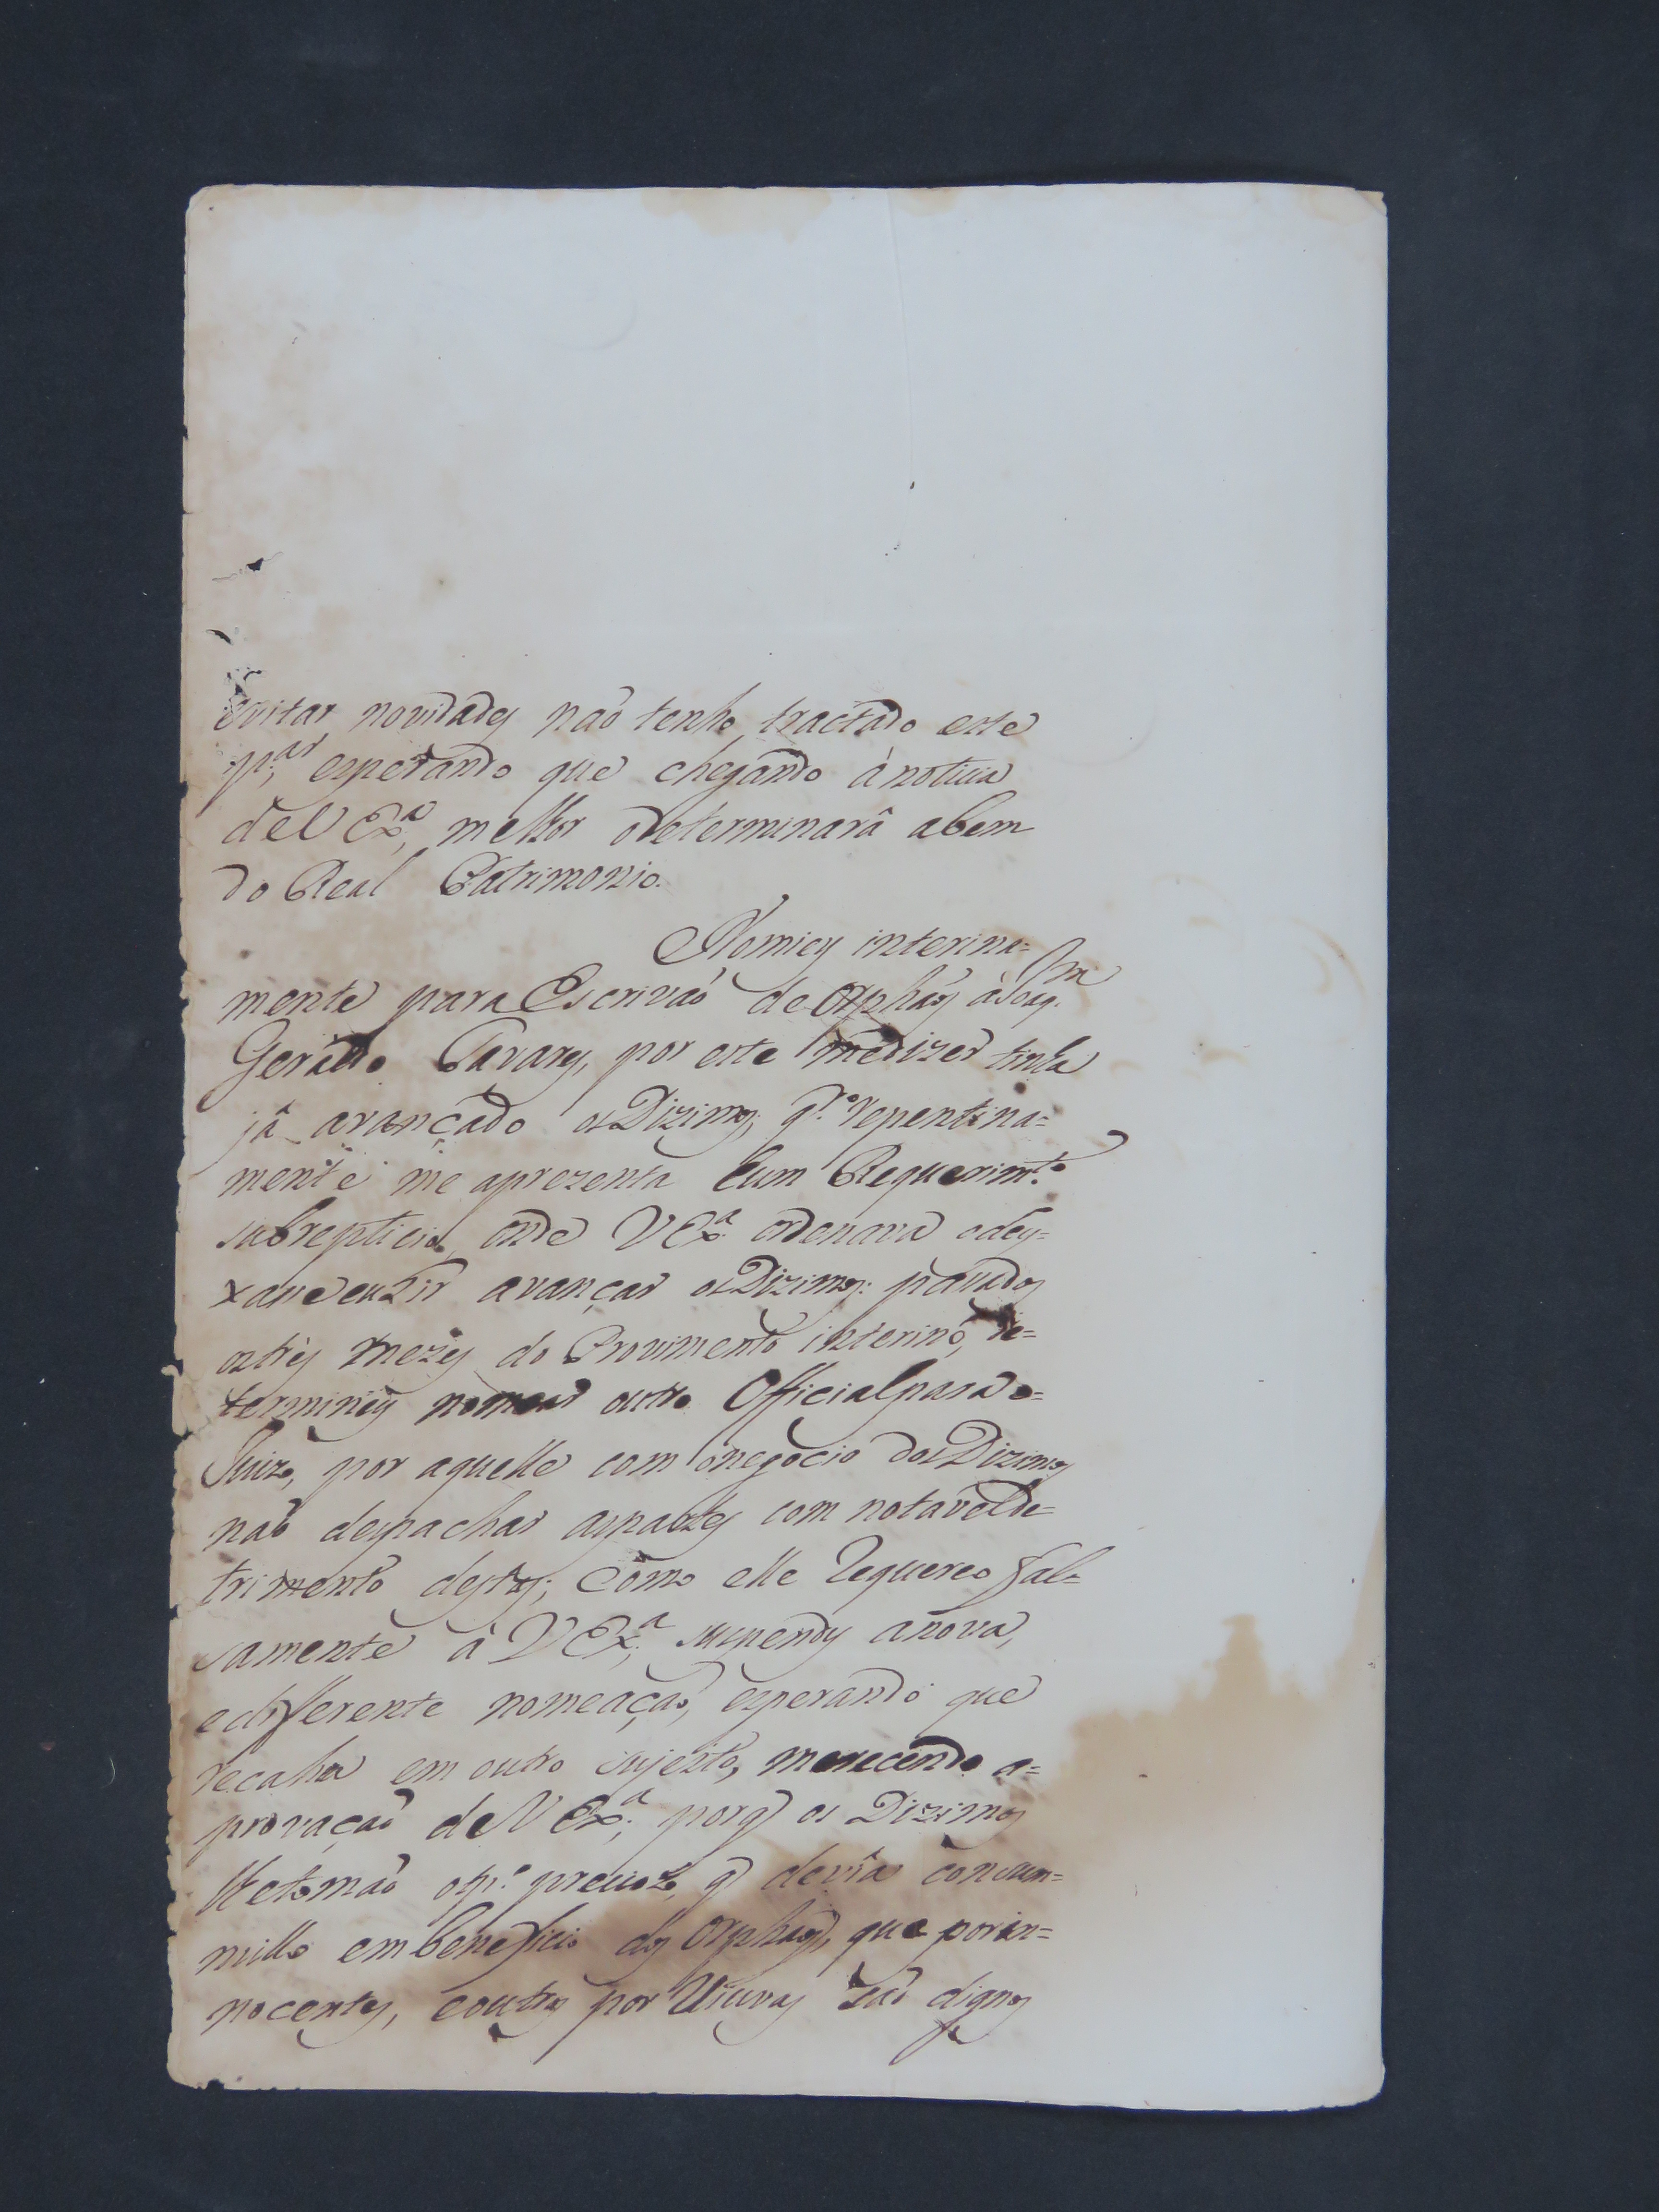 evitar novidades não tenho tractado este
p.ar, esperando que chegando à noticia
de V Ex.a, melhor odeterminarâ abem
do Real Patrimonio.
Nomiey interina=
mente para Escrivaõ de Orphaõs àJoaq.m
Geraldo Tavares, por este medizer tinha
jâ avançado osDizimos; q.do repentina=
mente me aprezenta hum Requerim.to
subrepticio, onde V Ex.a ordenava odey=
xase
avançar osDizimos: passados
ostrês mezes do Provimento interino, de=
terminey nomear outro Official para o=
Juizo, por aquelle com onegocio dosDizimos
naõ despachar aspartes com notavel de=
trimento destas; Como elle requereo fal=
samente à V Ex.a, suspendy anova,
edifferente nomeaçaõ, esperando que
recahia em outro sujeito, merecendo a=
provaçaõ de V Ex.a; porq os Dizimos
lhetomaõ otp.o precizo, q devîa consum=
millo embeneficio dos Orphaõs, que porin=
nocentes, eoutros por Viuvas saõ dignos